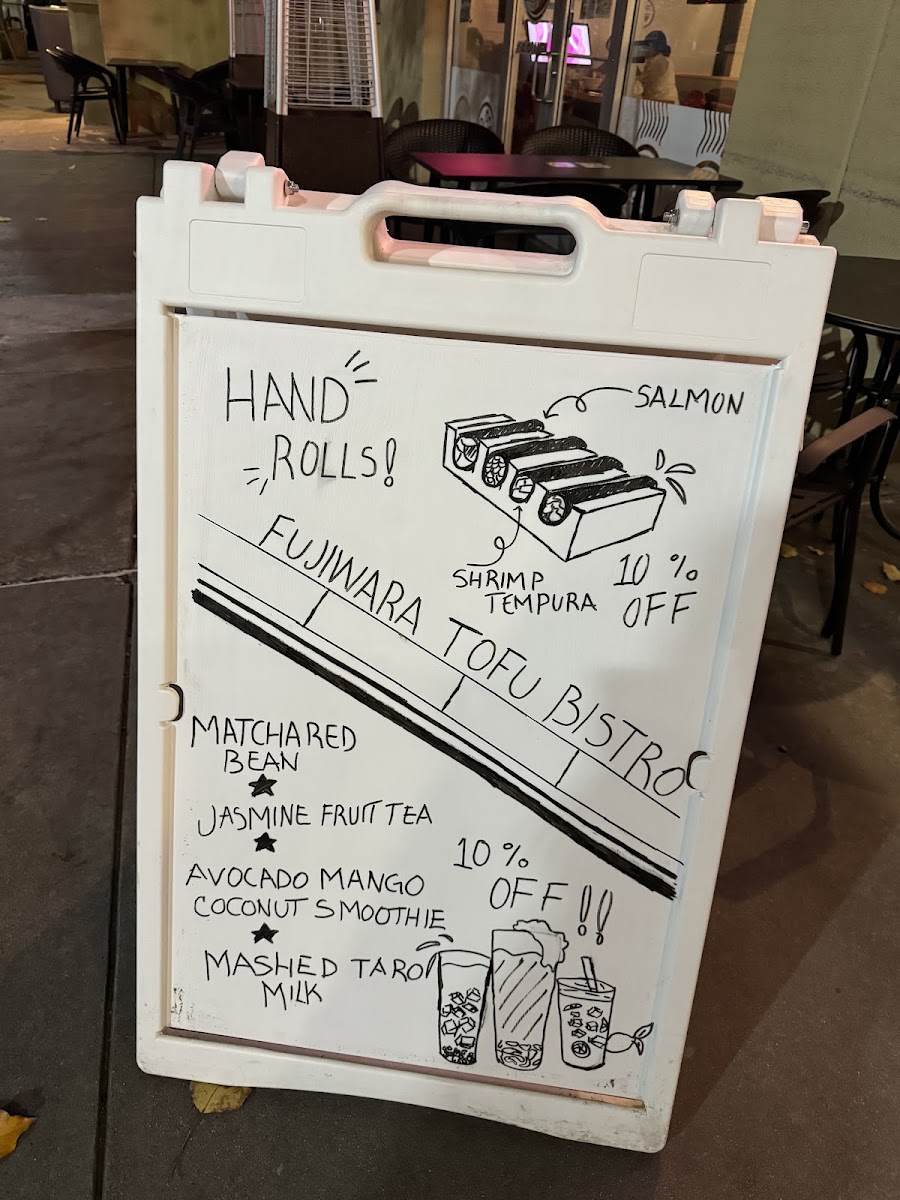 HAND
ROLLS!
SALMON
SHRIMP
TEMPURA
10 %
OFF
FUJIWARA TOFU BISTRO
MATCHA RED
BEAN
JASMINE FRUIT TEA
AVOCADO MANGO
COCONUT SMOOTHIE
MASHED TARO
MILK
10 %
OFF!!